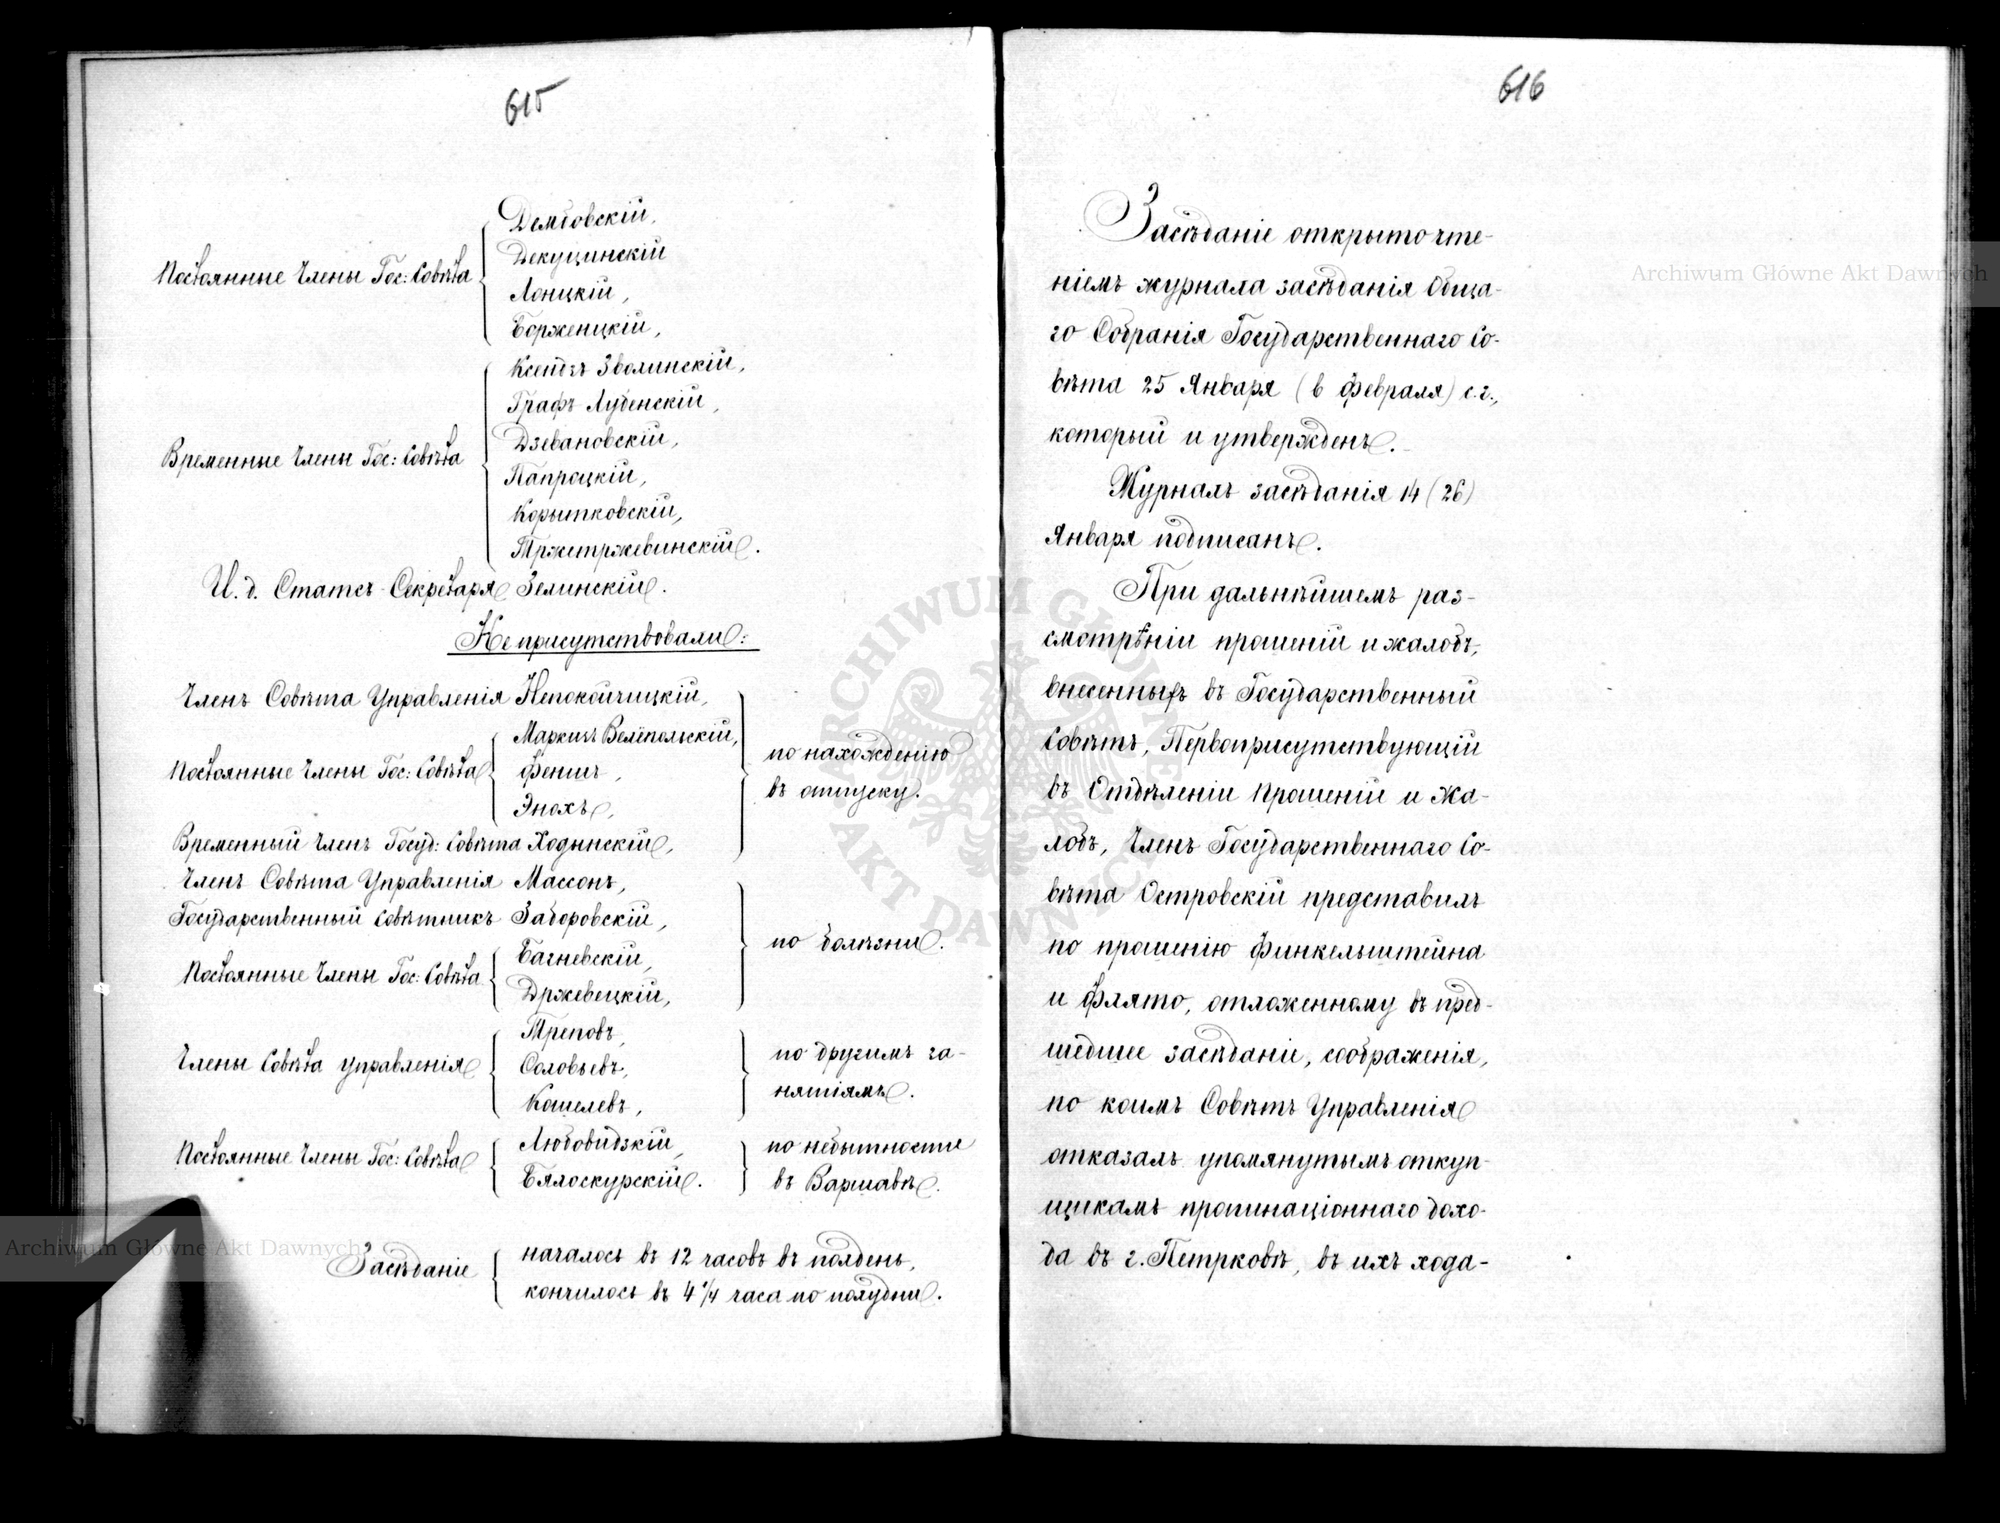 615
Постоянные Члены Гос: Совѣта
Дембовскій,
Декуцинскій
Лонцкій,
Борженцкій,
Временные Члены Гос: Совѣта
Ксендзъ Зволинскій,
Графъ Лубенскій,
Дзевановскій,
Папроцкій,
Корытковскій,
Тржетржевинскій.
И. д. Статсъ-Секретаря Зелинскій.
Не присутствовали:
Членъ Совѣта Управленія Непокойчицкій,
Постоянные Члены Гос: Совѣта
Маркизъ Велёпольскій,
Феншъ,
Энохъ,
Временный Членъ Госуд: Совѣта Ходынскій,
по нахожденію
въ отпуску.
Членъ Совѣта Управленія Массонъ,
Государственный Совѣтникъ Заборовскій,
Постоянные Члены Гос: Совѣта
Багневскій,
Држевецкій,
по болѣзни.
Члены Совѣта Управленія
Треповъ,
Соловьевъ,
Кошелевъ,
по другимъ за-
нятіямъ.
Постоянные Члены Гос: Совѣта
Любовидзкій,
Бялоскурскій.
по небытности
въ Варшавѣ.
Засѣданіе
началось въ 12 часовъ въ полдень,
кончилось въ 4 1/4 часа по полудни.
616
Засѣданіе открыто чте-
ніемъ журнала засѣданія Обща-
го Собранія Государственнаго Со-
вѣта 25 Января (6 Февраля) с. г.,
который и утвержденъ.
Журналъ засѣданія 14 (26)
Января подписанъ.
При дальнѣйшемъ раз-
смотрѣніи прошеній и жалобъ,
внесенныхъ въ Государственный
Совѣтъ, Первоприсутствующій
въ Отдѣленіи Прошеній и Жа-
лобъ, Членъ Государственнаго Со-
вѣта Островскій представилъ
по прошенію Финкельштейна
и Флято, отложенному въ пред-
шедшее засѣданіе, соображенія,
по коимъ Совѣтъ Управленія
отказалъ упомянутымъ откуп-
щикамъ пропинаціоннаго дохо-
да въ г. Петрковѣ, въ ихъ хода-
Archiwum Główne Akt Dawnych
Archiwum Główne Akt Dawnych
ARCHIWUM GŁÓWNE AKT DAWNYCH